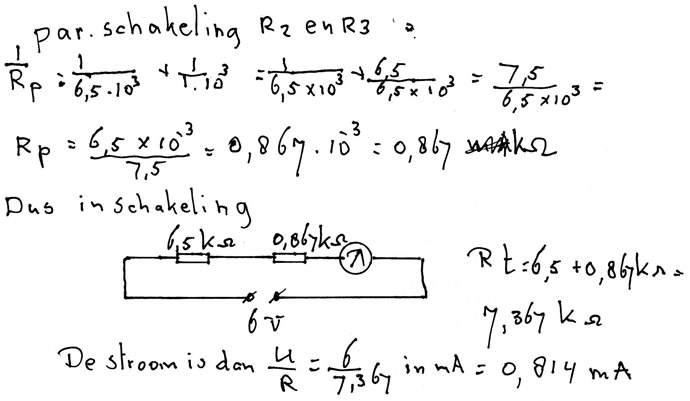 par. schakeling R2 en R3 :
1/Rp = 1/(6,5·10³) + 1/(1·10³) = 1/(6,5×10³) + 6,5/(6,5×10³) = 7,5/(6,5×10³) =
Rp = (6,5×10⁻³)/7,5 = 0,867·10⁻³ = 0,867 kΩ
Dus in schakeling
6,5kΩ 0,867kΩ
6 V
Rt=6,5+0,867kΩ=
7,367 kΩ
De stroom is dan U/R = 6/7,367 in mA = 0,814 mA